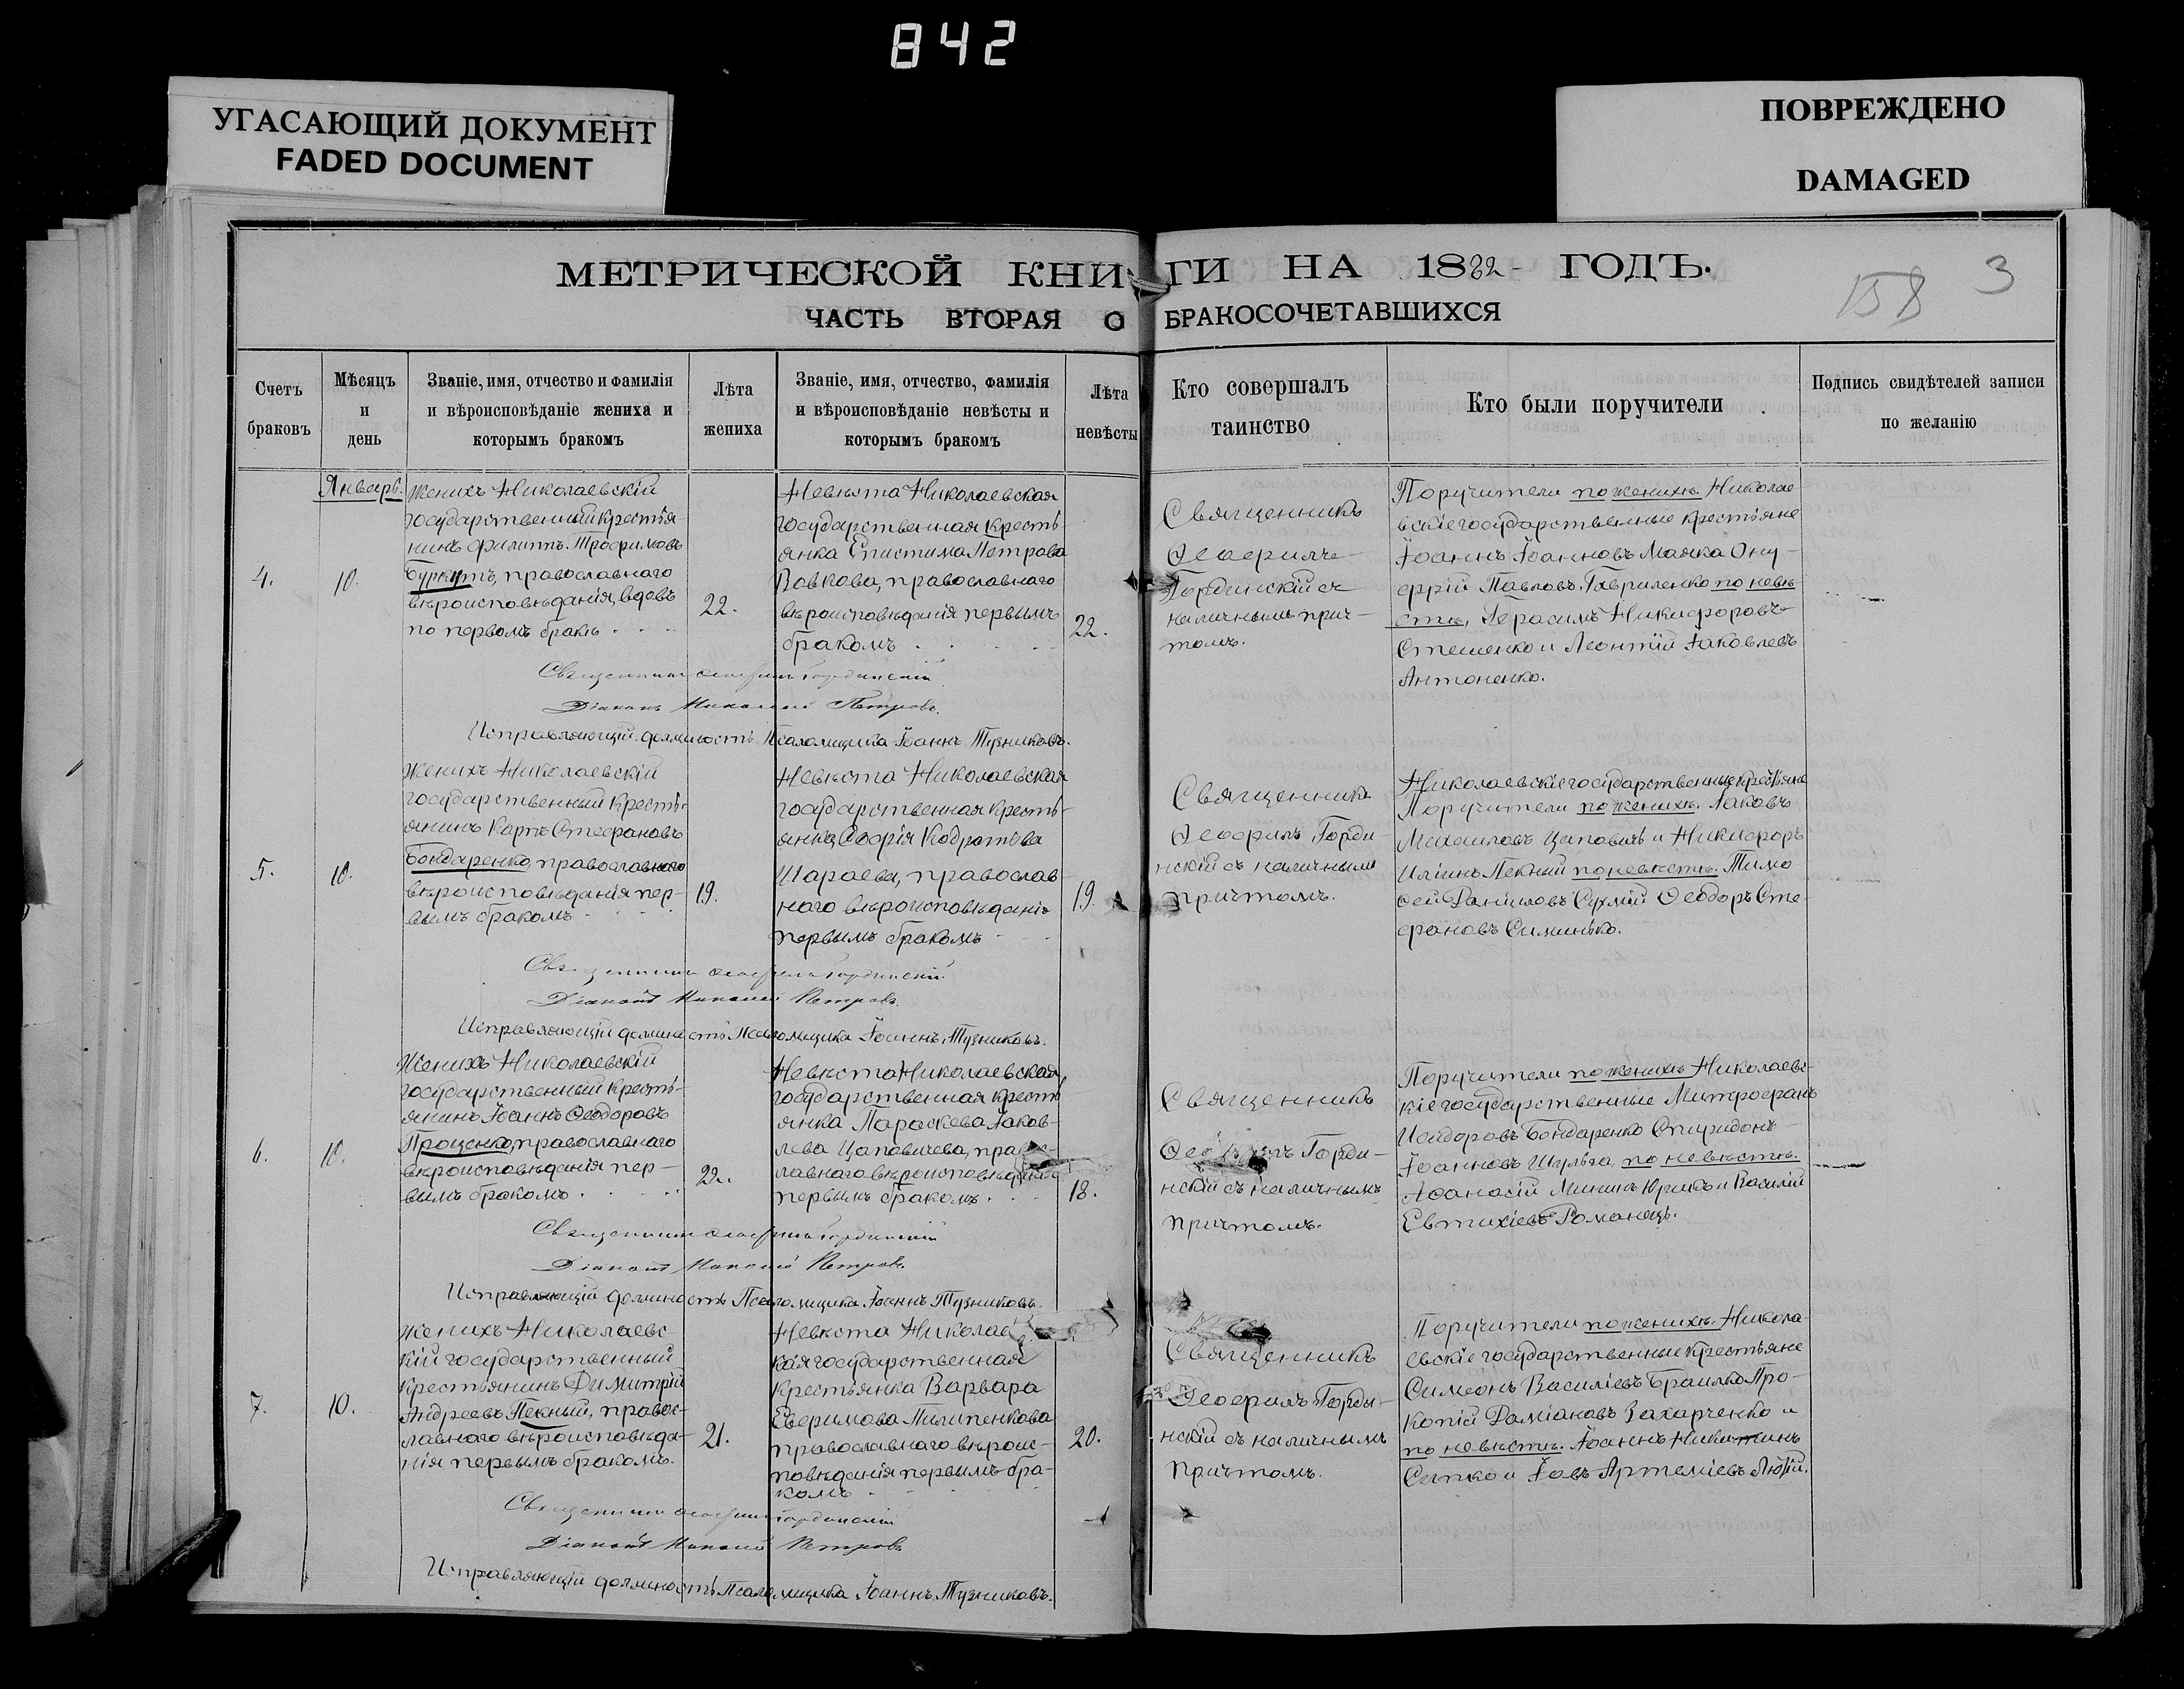 842
УГАСАЮЩИЙ ДОКУМЕНТ
FADED DOCUMENT
ПОВРЕЖДЕНО
DAMAGED
МЕТРИЧЕСКОЙ КНИГИ НА 1882 ГОДЪ.
158 3
ЧАСТЬ ВТОРАЯ О БРАКОСОЧЕТАВШИХСЯ
Счетъ
браковъ
Мѣсяцъ
и
день
Званіе, имя, отчество и фамилія
и вѣроисповѣданіе жениха и
которымъ бракомъ
Лѣта
жениха
Званіе, имя, отчество, фамилія
и вѣроисповѣданіе невѣсты и
которымъ бракомъ
Лѣта
невѣсты
Кто совершалъ
таинство
Кто были поручители
Подпись свидѣтелей записи
по желанію
Январь.
4.
10.
Женихъ Николаевскій
государственный крестья-
нинъ Филиппъ Трофимовъ
Буркутъ, православнаго
вѣроисповѣданія, вдовъ
по первомъ бракѣ
22.
Невѣста Николаевская
государственная кресть-
янка Епистима Петрова
Вовкова, православнаго
вѣроисповѣданія первымъ
бракомъ
22.
Священникъ
Ѳеофилъ
Гординскій съ
наличнымъ прич-
томъ.
Поручители по женихѣ. Николае
вскіе государственные крестьяне
Іоаннъ Іоанновъ Маяка Ону-
фрій Павловъ Гавриленко по невѣ-
стѣ, Герасимъ Никифоровъ
Стешенко и Леонтій Іаковлевъ
Антоненко.
Священникъ Ѳеофилъ Гординскій
Діаконъ Николай Петровъ.
Исправляющій должность Псаломщика Іоаннъ Тузниковъ.
5.
10.
Женихъ Николаевскій
государственный кресть-
янинъ Карпъ Стефановъ
Бондаренко, православнаго
вѣроисповѣданія пер-
вымъ бракомъ
19.
Невѣста Николаевская
государственная кресть-
янка Софія Кодратова
Шараева, православ-
наго вѣроисповѣданія
первымъ бракомъ
19.
Священникъ
Ѳеофилъ Горди-
нскій съ наличнымъ
причтомъ.
Николаевскіе государственные крестьяне
Поручители по женихѣ. Іаковъ
Михаиловъ Цаповичъ и Никифоръ
Иліинъ Пекный по невѣстѣ. Тимо
фей Даніиловъ Сухмій Ѳеодоръ Сте-
фановъ Симинько.
Священникъ Ѳеофилъ Гординскій
Діаконъ Николай Петровъ.
Исправляющій должность Псаломщика Іоаннъ Тузниковъ.
6.
10.
Женихъ Николаевскій
государственный кресть-
янинъ Іоаннъ Ѳеодоровъ
Проценко, православнаго
вѣроисповѣданія пер-
вымъ бракомъ
22.
Невѣста Николаевская
государственная кресть
янка Параскева Іаков-
лева Цаповичева, правос-
лавнаго вѣроисповѣданія
первымъ бракомъ.
18.
Священникъ
Ѳеофилъ Горди-
нскій съ наличнымъ
причтомъ.
Поручители по женихѣ Николаевс-
кіе государственные Митрофанъ
Исидоровъ Бондаренко Спиридонъ
Іоанновъ Шульга, по невѣстѣ.
Аѳанасій Мининъ Юридъ и Василій
Евтихіевъ Романецъ.
Священникъ Ѳеофилъ Гординскій
Діаконъ Николай Петровъ.
Исправляющій должность Псаломщика Іоаннъ Тузниковъ.
7.
10.
Женихъ Николаевс
кій государственный
крестьянинъ Димитрій
Андреевъ Пекный, правос-
лавнаго вѣроисповѣда-
нія первымъ бракомъ.
21.
Невѣста Николаев
кая государственная
крестьянка Варвара
Ефримова Пилипенкова
православнаго вѣроис-
повѣданія первымъ бра-
комъ
20.
Священникъ
Ѳеофилъ Горди-
нскій съ наличнымъ
причтомъ.
Поручители по женихѣ. Никола-
евскіе государственные крестьяне
Симеонъ Василіевъ Браилко Про-
копій Даміановъ Захарченко и
по невѣстѣ. Іоаннъ Никитинъ
Ситко и Іовъ Артеміевъ Лютій.
Священникъ Ѳеофилъ Гординскій
Діаконъ Николай Петровъ
Исправляющій должность Псаломщика Іоаннъ Тузниковъ.